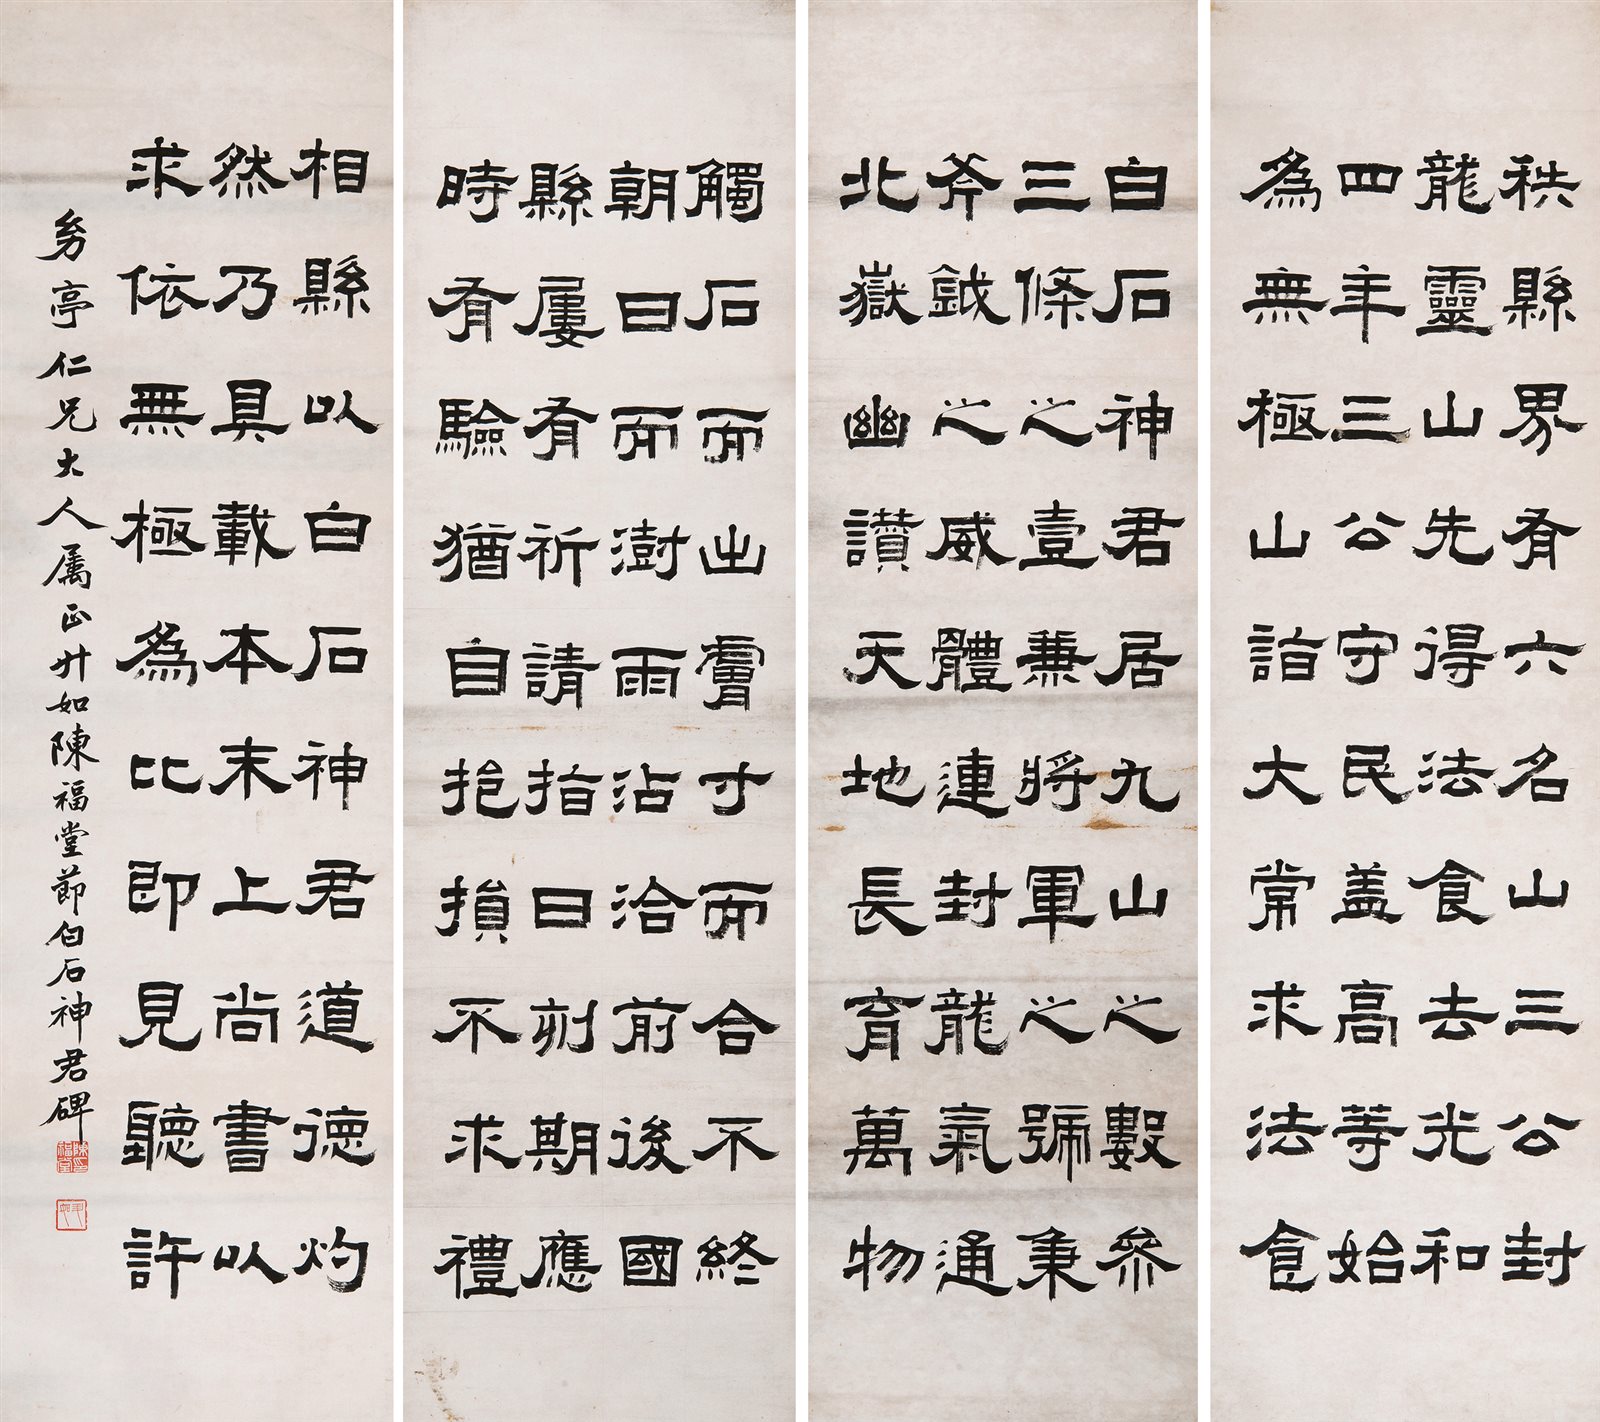 秩縣界有六名山三公封
龍靈山先得法食去光和
四年三公守民蓋高等始
為無極山詣大常求法食
白石神君居九山之數參
三條之壹兼將軍之號秉
斧鉞之威體連封龍氣通
北嶽幽讚天地長育萬物
觸石而出膚寸而合不終
朝日而澍雨沾洽前後國
縣屢有祈請指日刻期應
時有驗猶自挹損不求禮
相縣以白石神君道德灼
然乃具載本末上尚書以
求依無極為比即見聽許
亭仁兄大人属正 升如陳福堂節臼石神君碑